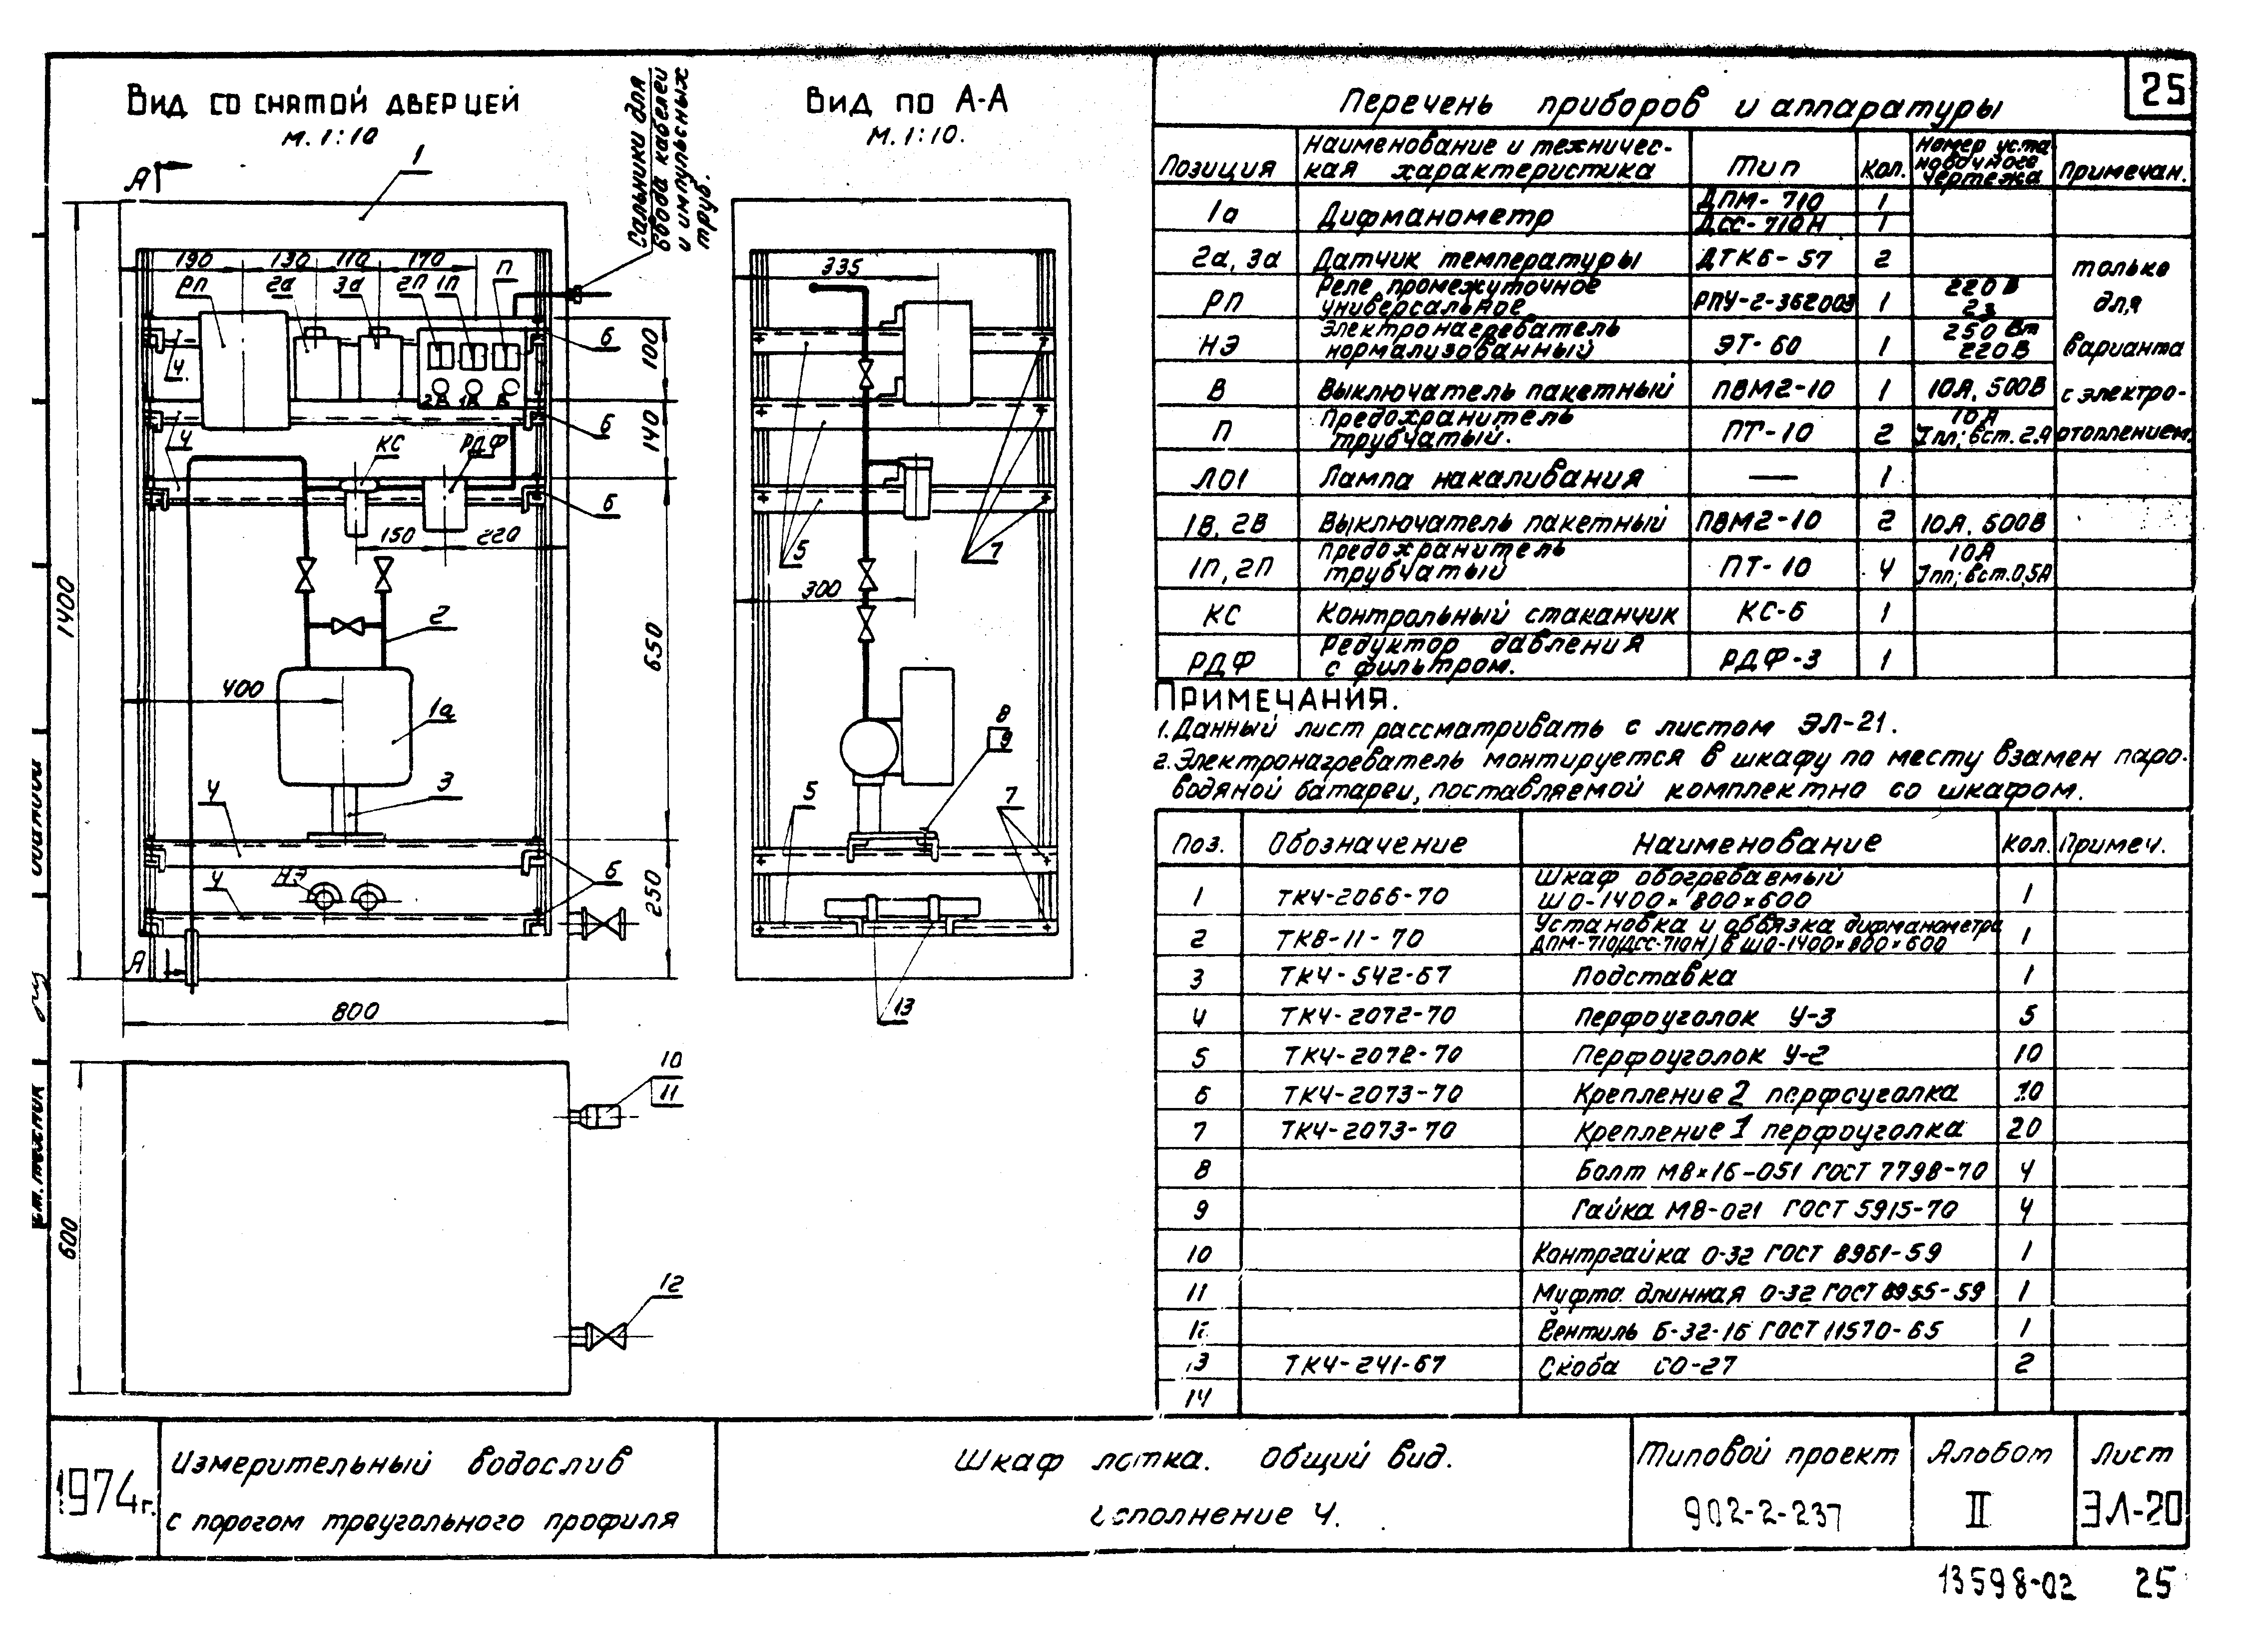 25
Вид со снятой дверцей
М. 1:10
Сальники для
ввода кабелей
и импульсных
труб.
Вид по А-А
М. 1:10.
А
1
190 130 110 170
РП 2а 3а 2П 1П П
4
6
100
4
6
140
4
КС РДФ
6
150 220
1400
2
650
400
1а
3
4
НЭ
4
6
250
А
800
335
5
7
300
8
9
5
7
13
600
10
11
12
Перечень приборов и аппаратуры
Позиция Наименование и техничес- кая характеристика Тип Кол. Номер уста новочного чертежа Примечан.
1а Дифманометр ДПМ-710 1
ДСС-710Н 1
2а, 3а Датчик температуры ДТКБ-57 2 только
РП Реле промежуточное универсальное РПУ-2-362003 1 220В 2з для
НЭ Электронагреватель нормализованный ЭТ-60 1 250 Вт 220В варианта
В Выключатель пакетный ПВМ2-10 1 10А, 500В с электро-
П Предохранитель трубчатый. ПТ-10 2 10А Iпл; вст. 2А отоплением.
ЛО1 Лампа накаливания — 1
1В, 2В Выключатель пакетный ПВМ2-10 2 10А, 500В
1П, 2П Предохранитель трубчатый ПТ-10 4 10А Iпл; вст. 0,5А
КС Контрольный стаканчик КС-6 1
РДФ Редуктор давления с фильтром. РДФ-3 1
Примечания.
1. Данный лист рассматривать с листом ЭЛ-21.
2. Электронагреватель монтируется в шкафу по месту взамен паро-
водяной батареи, поставляемой комплектно со шкафом.
Поз. Обозначение Наименование Кол. Примеч.
1 ТК4-2066-70 Шкаф обогреваемый ШО-1400×800×600 1
2 ТКВ-11-70 Установка и обвязка дифманометра ДПМ-710(ДСС-710Н) в ШО-1400×800×600 1
3 ТК4-542-67 Подставка 1
4 ТК4-2072-70 Перфоуголок У-3 5
5 ТК4-2072-70 Перфоуголок У-2 10
6 ТК4-2073-70 Крепление 2 перфоуголка 10
7 ТК4-2073-70 Крепление 1 перфоуголка 20
8 Болт М8×16-051 ГОСТ 7798-70 4
9 Гайка М8-021 ГОСТ 5915-70 4
10 Контргайка О-32 ГОСТ 8961-59 1
11 Муфта длинная О-32 ГОСТ 8955-59 1
12 Вентиль Б-32-16 ГОСТ 11570-65 1
13 ТК4-241-67 Скоба СО-27 2
14
1974г. Измерительный водослив
с порогом треугольного профиля
Шкаф лотка. Общий вид.
исполнение 4.
Типовой проект
902-2-237
Альбом
II
Лист
ЭЛ-20
13598-02 25